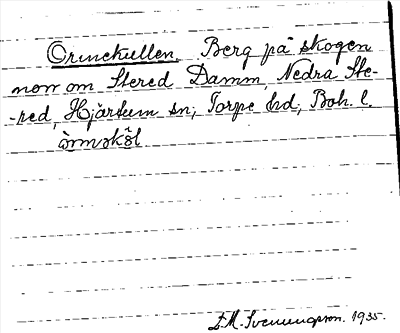 Ormekullen. Berg på skogen
norr om Stered Damm, Nedra Ste-
-red, Hjärtum sn; Torpe hd; Boh. l.
örmskøl
D.M. Svenungson. 1935.